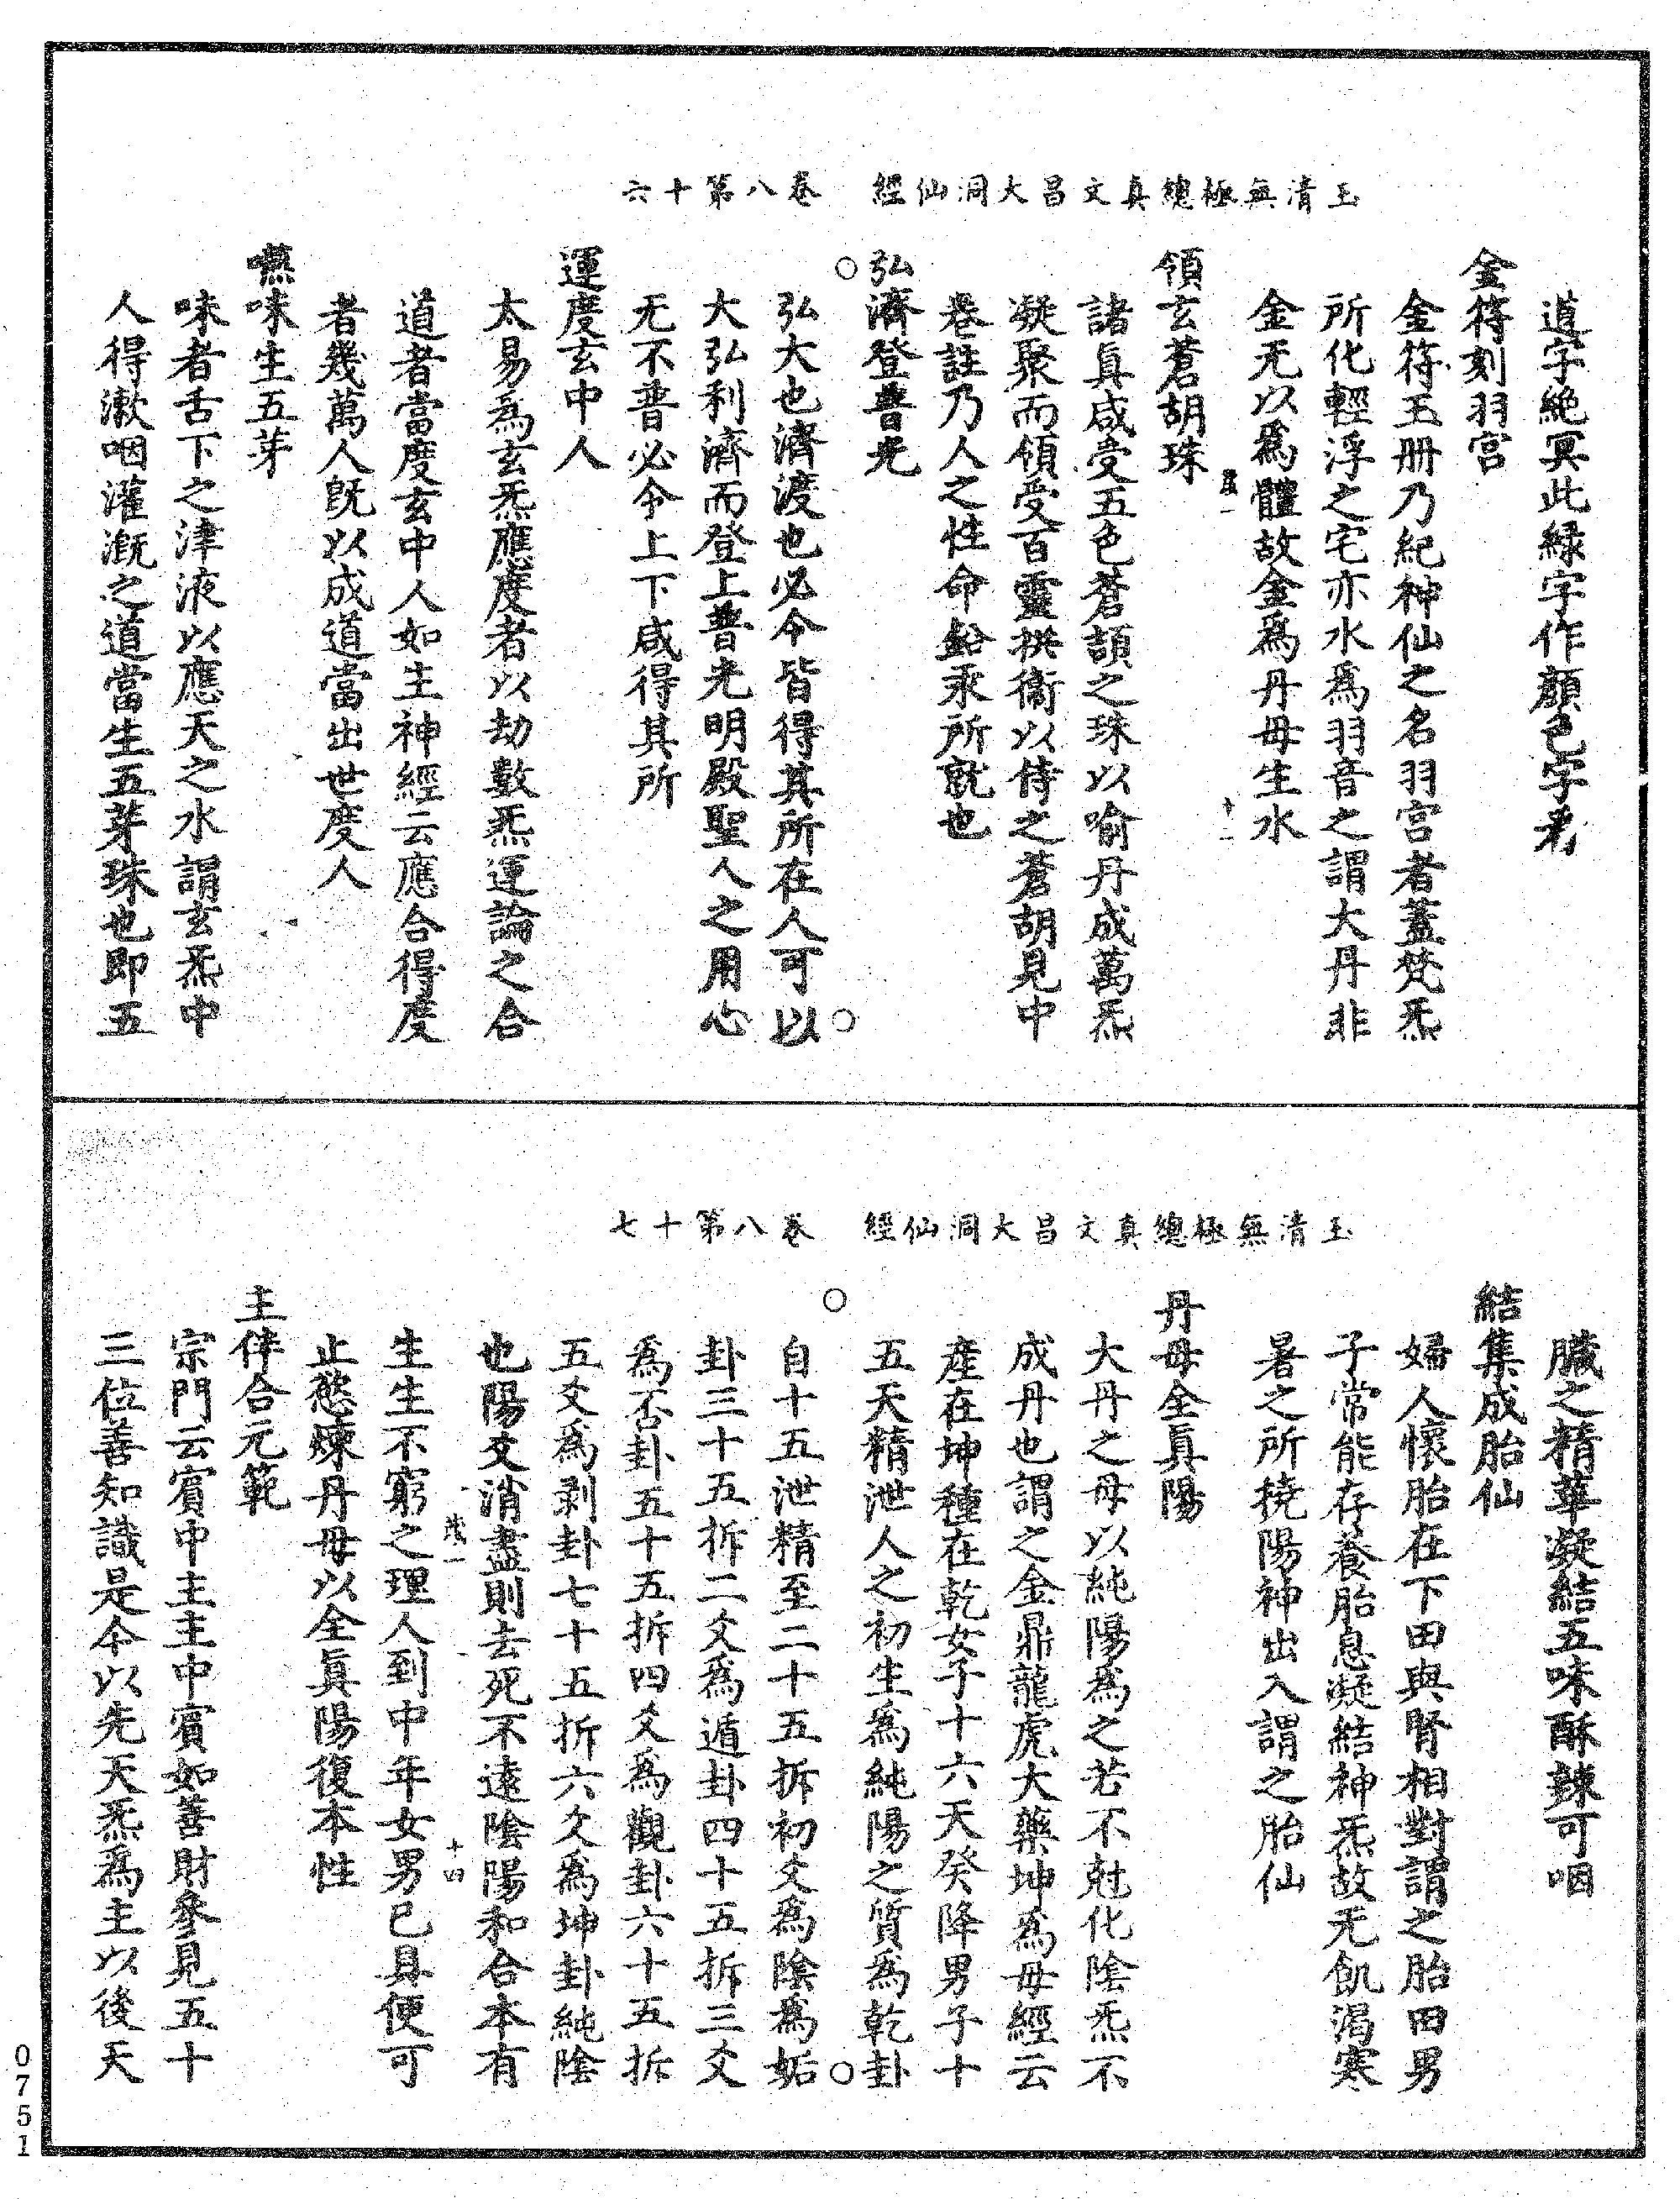 玉清無極總真文昌大洞仙經　卷八第十六
道字絶冥此緑字作顔色字看
金符刻羽宫
金符玉册乃紀神仙之名羽宫者蓋梵炁
所化輕浮之宅亦水爲羽音之謂大丹非
金无以爲體故金爲丹母生水
十一
領玄蒼胡珠
諸真咸受五色蒼頡之珠以喻丹成萬炁
凝聚而領受百靈拱衞以侍之蒼胡見中
卷註乃人之性命鉛汞所就也
弘濟登普光
弘大也濟渡也必令皆得其所在人可以
大弘利濟而登上普光明殿聖人之用心
无不普必令上下咸得其所
運度玄中人
太易爲玄炁應度者以劫數炁運論之合
道者當度玄中人如主神經云應合得度
者幾萬人旣以成道當出世度人
嚥味生五芽
味者舌下之津液以應天之水謂玄炁中
人得漱咽灌漑之道當生五芽珠也即五
玉清無極總真文昌大洞仙經　卷八第十七
臟之精華凝結五味酥辣可咽
結集成胎仙
婦人懷胎在下田與腎相對謂之胎田男
子常能存養胎息凝結神炁故无飢渴寒
暑之所撓陽神出入謂之胎仙
丹母全眞陽
大丹之母以純陽爲之若不尅化陰炁不
成丹也謂之金鼎龍虎大藥坤爲母經云
産在坤種在乾女子十六天癸降男子十
五天精泄人之初生爲純陽之質爲乾卦
自十五泄精至二十五拆初爻爲陰爲姤
卦三十五拆二爻爲遁卦四十五拆三爻
爲否卦五十五拆四爻爲觀卦六十五拆
五爻爲剥卦七十五拆六爻爲坤卦純陰
也陽爻消盡則去死不遠陰陽和合本有
茂一　十四
生生不窮之理人到中年女男已具便可
止慾煉丹母以全眞陽復本性
主伴合元範
宗門云賓中主主中賓如善財參見五十
三位善知識是今以先天炁爲主以後天
0751